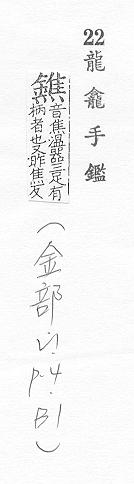 22龍龕手鑑
鐎
音焦溫器三足有
柄者也又昨焦反
(金部 p.4.B1)